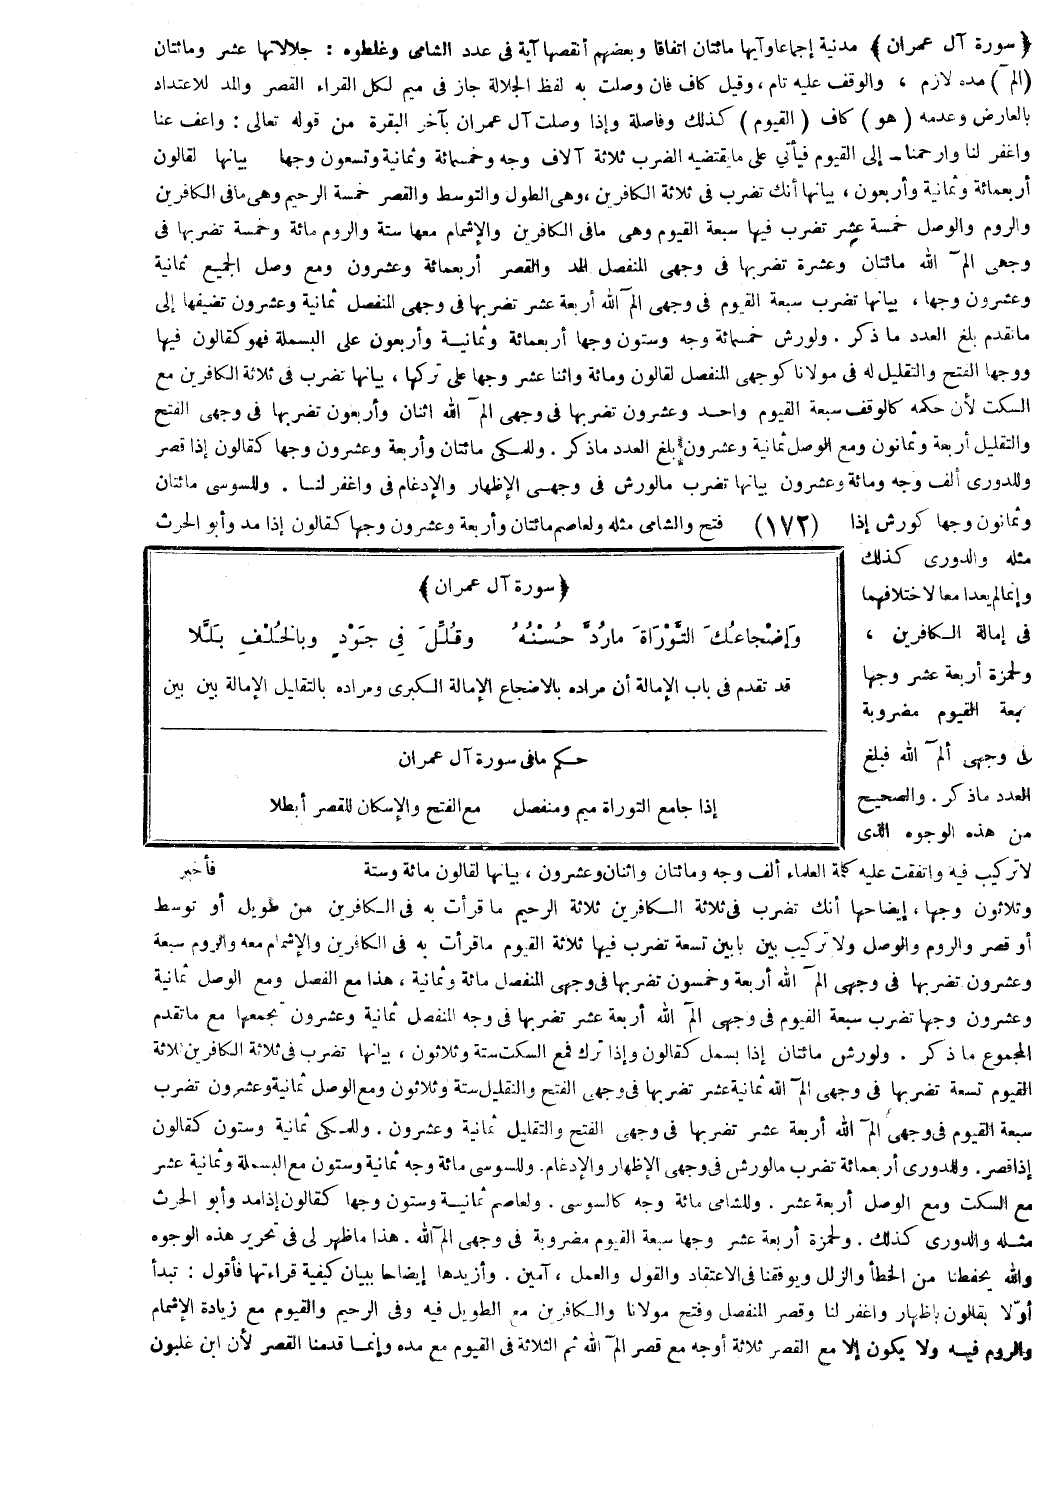 ﴿ سورة آل عمران ﴾ مدنية إجماعا وآيها مائتان اتفاقا وبعضهم أنقصها آية فى عدد الشامى وغلطوه : جلالاتها عشر ومائتان
(الم~) مده لازم ، والوقف عليه تام ، وقيل كاف فان وصلت به لفظ الجلالة جاز فى ميم لكل القراء القصر والمد للاعتداد
بالعارض وعدمه ( هو ) كاف ( القيوم ) كذلك وفاصلة وإذا وصلت آل عمران بآخر البقرة من قوله تعالى : واعف عنا
واغفر لنا وارحمنا ـ إلى القيوم فيأتي على ما يقتضيه الضرب ثلاثة آلاف وجه وخمسمائة وثمانية وتسعون وجها بيانها لقالون
أربعمائة وثمانية وأربعون ، بيانها أنك تضرب فى ثلاثة الكافرين ، وهى الطول والتوسط والقصر خمسة الرحيم وهى مافى الكافرين
والروم والوصل خمسة عشر تضرب فيها سبعة القيوم وهى مافى الكافرين والإشمام معها ستة والروم مائة وخمسة تضربها فى
وجهى الم~ الله مائتان وعشرة تضربها فى وجهى المنفصل المد والقصر أربعمائة وعشرون ومع وصل الجميع ثمانية
وعشرون وجها ، بيانها تضرب سبعة القيوم فى وجهى الم~ الله أربعة عشر تضربها فى وجهى المنفصل ثمانية وعشرون تضيفها إلى
ماتقدم بلغ العدد ما ذكر . ولورش خمسمائة وجه وستون وجها أربعمائة وثمانيـة وأربعون على البسملة فهو كقالون فيها
ووجها الفتح والتقليل له فى مولانا كوجهى المنفصل لقالون ومائة واثنا عشر وجها على تركها ، بيانها تضرب فى ثلاثة الكافرين مع
السكت لأن حكمه كالوقف سبعة القيوم واحـد وعشرون تضربها فى وجهى الم~ الله اثنان وأربعون تضربها فى وجهى الفتح
والتقليل أربعة وثمانون ومع الوصل ثمانية وعشرون بلغ العدد ماذكر . وللمـكى مائتان وأربعة وعشرون وجها كقالون إذا قصر
وللدورى ألف وجه ومائة وعشرون بيانها تضرب مالورش فى وجهـى الإظهار والإدغام فى واغفر لنـا . وللسوسى مائتان
وثمانون وجها كورش إذا (١٧٢) فتح والشامى مثله ولعاصم مائتان وأربعة وعشرون وجها كقالون إذا مد وأبو الحرث
مثله والدورى كذلك
وإنما لم يعدا معا لاختلافهما
فى إمالة الـكافرين ،
ولحمزة أربعة عشر وجها
سبعة القيوم مضروبة
فى وجهى ألم~ الله فبلغ
العدد ماذكر . والصحيح
من هذه الوجوه الذى
﴿ سورة آل عمران ﴾
وَإِضْجَاعُكَ التَّوْرَاةَ مارُدَّ حُسْنُهُ وقُلِّلَ فِي جَوْدٍ وبالخُلْفِ بَلَّلا
قد تقدم فى باب الإمالة أن مراده بالاضجاع الإمالة الـكبرى ومراده بالتقليل الإمالة بين بين
حكم مافى سورة آل عمران
إذا جامع التوراة ميم ومنفصل مع الفتح والإسكان للقصر أبطلا
لاتركيب فيه واتفقت عليه كلمة العلماء ألف وجه ومائتان واثنان وعشرون ، بيانها لقالون مائة وستة
وثلاثون وجها ، إيضاحها أنك تضرب فى ثلاثة الـكافرين ثلاثة الرحيم ما قرأت به فى الـكافرين من طويل أو توسط
أو قصر والروم والوصل ولا تركيب بين بابين تسعة تضرب فيها ثلاثة القيوم ماقرأت به فى الكافرين والإشمام معه والروم سبعة
وعشرون تضربها فى وجهى الم~ الله أربعة وخمسون تضربها فى وجهى المنفصل مائة وثمانية ، هذا مع الفصل ومع الوصل ثمانية
وعشرون وجها تضرب سبعة القيوم فى وجهى الم~ الله أربعة عشر تضربها فى وجه المنفصل ثمانية وعشرون تجمعها مع ماتقدم
المجموع ما ذكر . ولورش مائتان إذا بسمل كقالون وإذا ترك فمع السكت ستة وثلاثون ، بيانها تضرب فى ثلاثة الكافرين ثلاثة
القيوم تسعة تضربها فى وجهى الم~ الله ثمانية عشر تضربها فى وجهى الفتح والتقليل ستة وثلاثون ومع الوصل ثمانية وعشرون تضرب
سبعة القيوم فى وجهى الم~ الله أربعة عشر تضربها فى وجهى الفتح والتقليل ثمانية وعشرون . وللمـكى ثمانية وستون كقالون
إذا قصر. وللدورى أربعمائة تضرب مالورش فى وجهى الإظهار والإدغام. وللسوسى مائة وجه ثمانية وستون مع البسملة وثمانية عشر
مع السكت ومع الوصل أربعة عشر . وللشامى مائة وجه كالسوسى . ولعاصم ثمانيـة وستون وجها كقالون إذا مد وأبو الحرث
مثـله والدورى كذلك . ولحمزة أربعة عشر وجها سبعة القيوم مضروبة فى وجهى الم~ الله . هذا ماظهر لى فى تحرير هذه الوجوه
والله يحفظنا من الخطأ والزلل ويوفقنا فى الاعتقاد والقول والعمل ، آمين . وأزيدها إيضاحا ببيان كيفية قراءتها فأقول : تبدأ
أوّلا بقالون بإظهار واغفر لنا وقصر المنفصل وفتح مولانا والـكافرين مع الطويل فيه وفى الرحيم والقيوم مع زيادة الإشمام
والروم فيـه ولا يكون إلا مع القصر ثلاثة أوجه مع قصر الم~ الله ثم الثلاثة فى القيوم مع مده وإنمـا قدمنا القصر لأن ابن غلبون